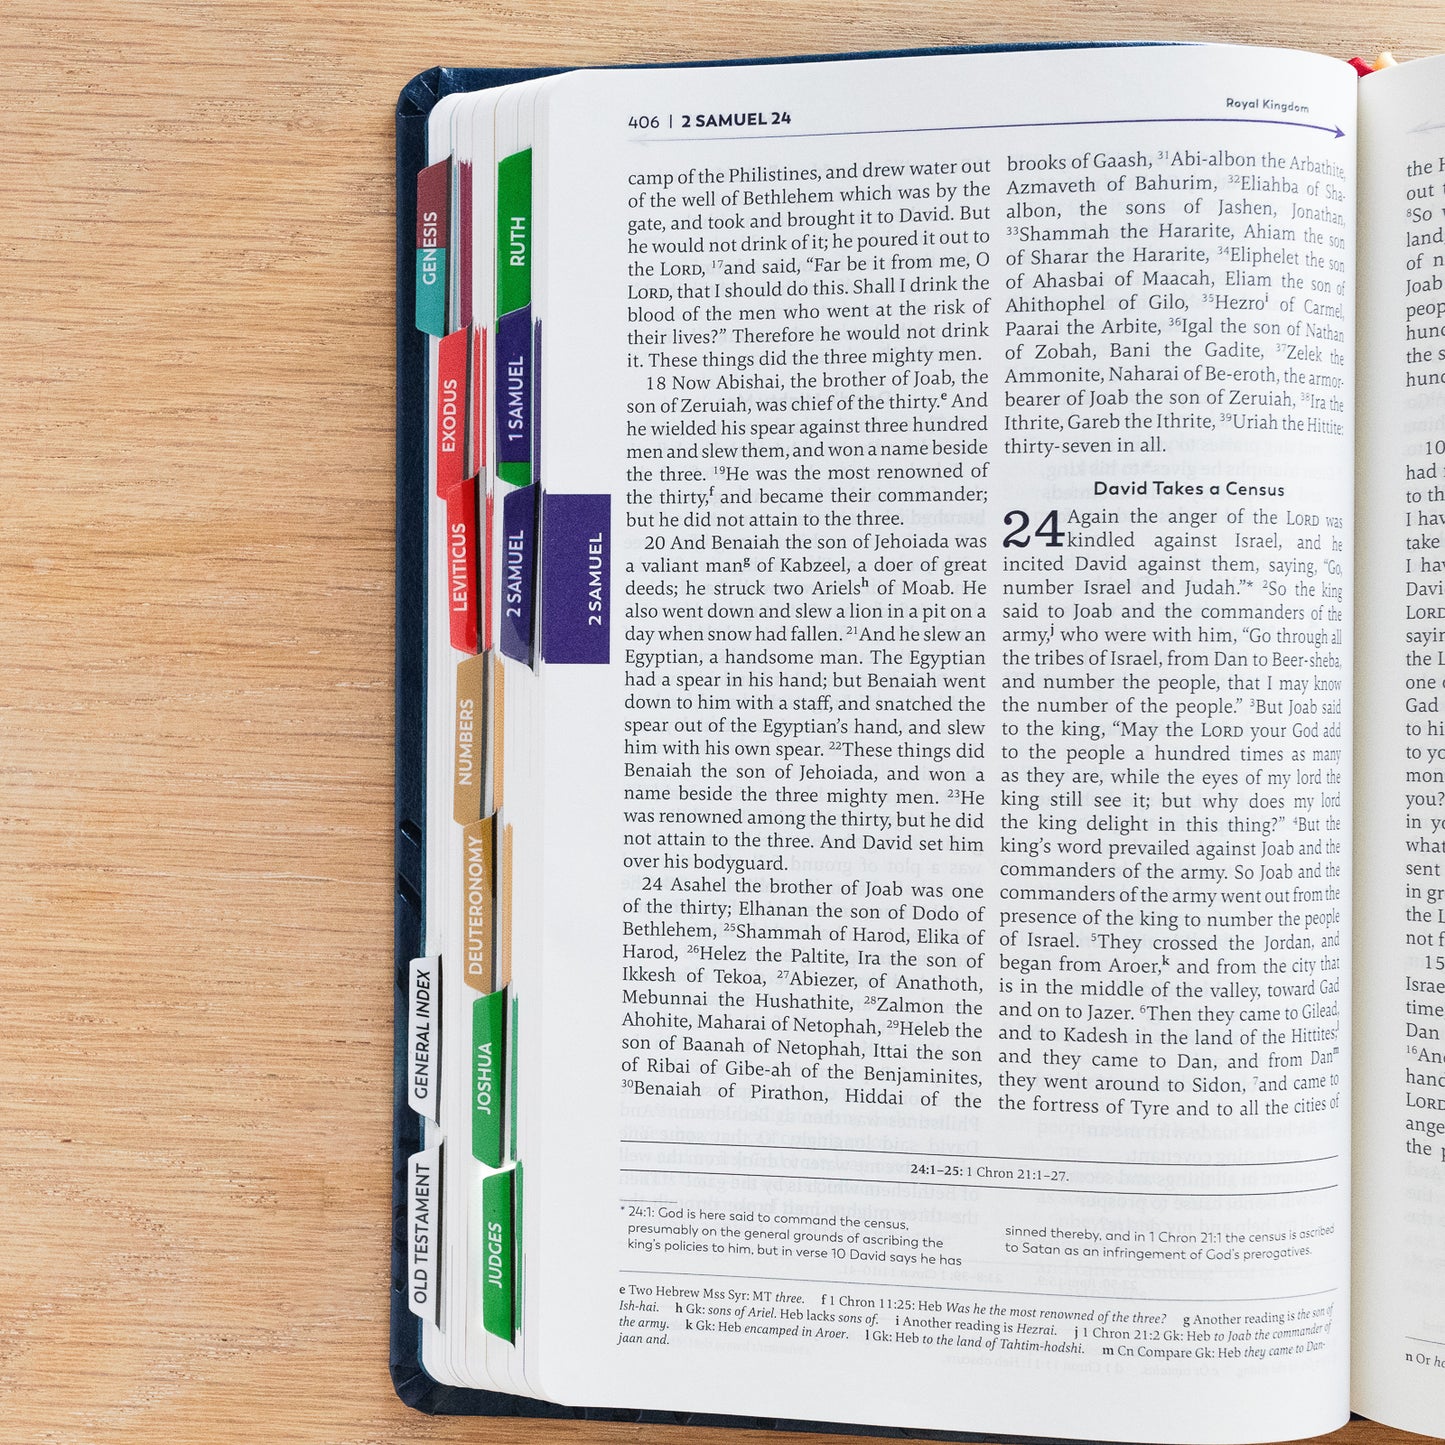 406 | 2 SAMUEL 24
Royal Kingdom
camp of the Philistines, and drew water out
of the well of Bethlehem which was by the
gate, and took and brought it to David. But
he would not drink of it; he poured it out to
the LORD, ¹⁷and said, “Far be it from me, O
LORD, that I should do this. Shall I drink the
blood of the men who went at the risk of
their lives?” Therefore he would not drink
it. These things did the three mighty men.
18 Now Abishai, the brother of Joab, the
son of Zeruiah, was chief of the thirty.ᵉ And
he wielded his spear against three hundred
men and slew them, and won a name beside
the three. ¹⁹He was the most renowned of
the thirty,ᶠ and became their commander;
but he did not attain to the three.
20 And Benaiah the son of Jehoiada was
a valiant manᵍ of Kabzeel, a doer of great
deeds; he struck two Arielsʰ of Moab. He
also went down and slew a lion in a pit on a
day when snow had fallen. ²¹And he slew an
Egyptian, a handsome man. The Egyptian
had a spear in his hand; but Benaiah went
down to him with a staff, and snatched the
spear out of the Egyptian’s hand, and slew
him with his own spear. ²²These things did
Benaiah the son of Jehoiada, and won a
name beside the three mighty men. ²³He
was renowned among the thirty, but he did
not attain to the three. And David set him
over his bodyguard.
24 Asahel the brother of Joab was one
of the thirty; Elhanan the son of Dodo of
Bethlehem, ²⁵Shammah of Harod, Elika of
Harod, ²⁶Helez the Paltite, Ira the son of
Ikkesh of Tekoa, ²⁷Abiezer, of Anathoth,
Mebunnai the Hushathite, ²⁸Zalmon the
Ahohite, Maharai of Netophah, ²⁹Heleb the
son of Baanah of Netophah, Ittai the son
of Ribai of Gibe-ah of the Benjaminites,
³⁰Benaiah of Pirathon, Hiddai of the
brooks of Gaash, ³¹Abi-albon the Arbathite,
Azmaveth of Bahurim, ³²Eliahba of Sha-
albon, the sons of Jashen, Jonathan,
³³Shammah the Hararite, Ahiam the son
of Sharar the Hararite, ³⁴Eliphelet the son
of Ahasbai of Maacah, Eliam the son of
Ahithophel of Gilo, ³⁵Hezroⁱ of Carmel,
Paarai the Arbite, ³⁶Igal the son of Nathan
of Zobah, Bani the Gadite, ³⁷Zelek the
Ammonite, Naharai of Be-eroth, the armor-
bearer of Joab the son of Zeruiah, ³⁸Ira the
Ithrite, Gareb the Ithrite, ³⁹Uriah the Hittite:
thirty-seven in all.
David Takes a Census
24 Again the anger of the LORD was
kindled against Israel, and he
incited David against them, saying, “Go,
number Israel and Judah.”* ²So the king
said to Joab and the commanders of the
army,ʲ who were with him, “Go through all
the tribes of Israel, from Dan to Beer-sheba,
and number the people, that I may know
the number of the people.” ³But Joab said
to the king, “May the LORD your God add
to the people a hundred times as many
as they are, while the eyes of my lord the
king still see it; but why does my lord
the king delight in this thing?” ⁴But the
king’s word prevailed against Joab and the
commanders of the army. So Joab and the
commanders of the army went out from the
presence of the king to number the people
of Israel. ⁵They crossed the Jordan, and
began from Aroer,ᵏ and from the city that
is in the middle of the valley, toward Gad
and on to Jazer. ⁶Then they came to Gilead,
and to Kadesh in the land of the Hittites;ˡ
and they came to Dan, and from Danᵐ
they went around to Sidon, ⁷and came to
the fortress of Tyre and to all the cities of
24:1–25: 1 Chron 21:1–27.
* 24:1: God is here said to command the census,
presumably on the general grounds of ascribing the
king’s policies to him, but in verse 10 David says he has
sinned thereby, and in 1 Chron 21:1 the census is ascribed
to Satan as an infringement of God’s prerogatives.
e Two Hebrew Mss Syr: MT three. f 1 Chron 11:25: Heb Was he the most renowned of the three? g Another reading is the son of
Ish-hai. h Gk: sons of Ariel. Heb lacks sons of. i Another reading is Hezrai. j 1 Chron 21:2 Gk: Heb to Joab the commander of
the army. k Gk: Heb encamped in Aroer. l Gk: Heb to the land of Tahtim-hodshi. m Cn Compare Gk: Heb they came to Dan-
jaan and.
GENESIS
EXODUS
LEVITICUS
NUMBERS
DEUTERONOMY
JOSHUA
JUDGES
RUTH
1 SAMUEL
2 SAMUEL
2 SAMUEL
GENERAL INDEX
OLD TESTAMENT
the
out
⁸So
land
of
Joab
the s
10
had
to th
I hav
take
I ha
Davi
LORD
the L
one
Gad
to hi
to yo
you?
in yo
what
sent
in gr
the L
not f
15
Israe
time
Dan
LORD
the p
n Or